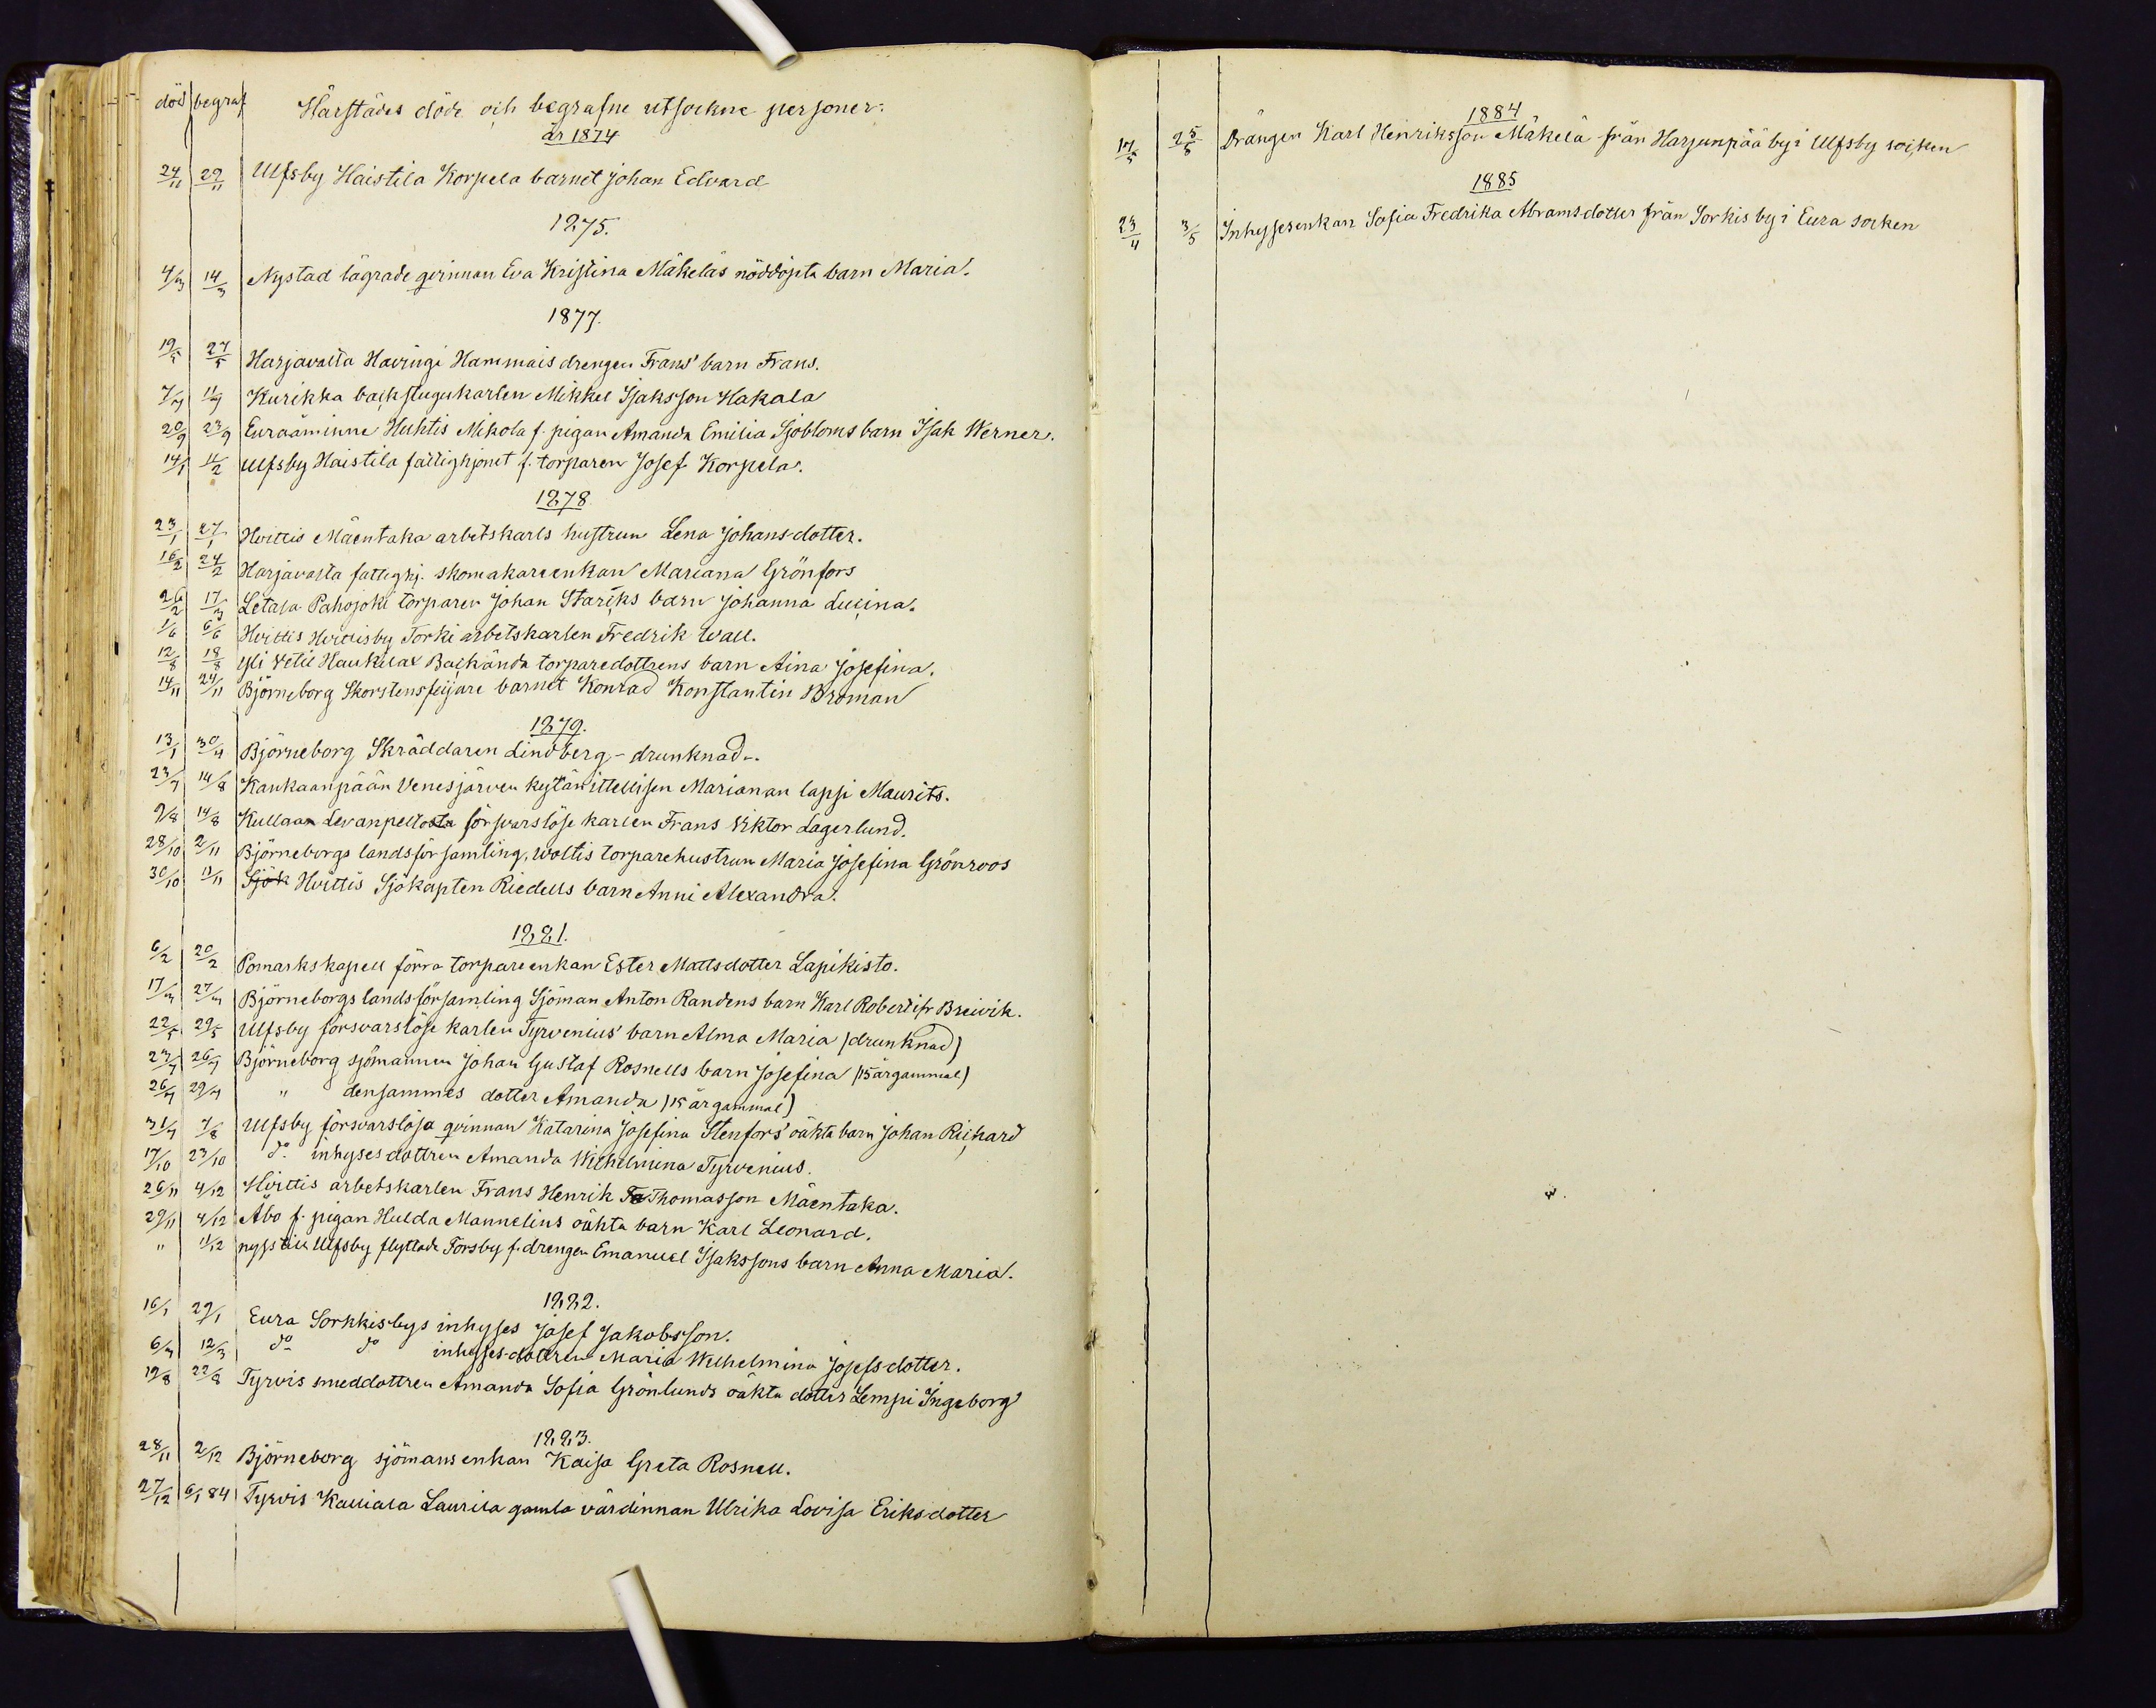 död begraf Härstädes döde och begrafne utsockne personer:
år 1874
24/11 29/11 Ulfsby Haistila Korpela barnet Johan Edvard
1875.
4/3 14/3 Nystad lägrade qvinnan Eva Kristina Mäkeläs nöddöpta barn Maria.
1877.
19/5 27/5 Harjavalta Havingi Hammais drengen Frans' barn Frans.
7/9 11/9 Kurikka backstugukarlen Mikkel Isaksson Hakala
20/9 23/9 Euraåminne Huhtis Mikola f. pigan Amanda Emilia Sjöbloms barn Isak Werner.
14/1 11/2 Ulfsby Haistila fattighjonet f. torparen Josef Korpela.
1878
23/1 27/1 Hvittis Mäentaka arbetskarls hustrun Lena Johansdotter.
16/2 24/2 Harjavalta fattighj. skomakareenkan Mariana Grönfors
26/2 17/3 Letala Pahojoki torparen Johan Staricks barn Johanna Lucina.
1/6 6/6 Hvittis Hvittisby Torki arbetskarlen Fredrik Wall.
12/8 18/8 Yli Vetil Haukilax Backända torparedottrens barn Aina Josefina.
14/11 24/11 Björneborg Skorstensfejare barnet Konrad Konstantin Broman
1879.
13/1 30/4 Björneborg Skräddaren Lindberg - drunknad -.
23/7 14/8 Kankaanpään Venesjärven kylän ittellisen Marianan lapsi Maurits.
9/8 14/8 Kullaan Levanpellosta försvarslöse karlen Frans Viktor Lagerlund.
28/10 2/11 Björneborgs landsförsamling, Woltis torparehustrun Maria Josefina Grönroos
30/10 11/11 Sjök Hvittis Sjökapten Riedells barn Anni Alexandra.
1881.
6/2 20/2 Pomarkskapell förra torpareenkan Ester Mattsdotter Lapikisto.
17/3 27/3 Björneborgs landsförsamling Sjöman Anton Randens barn Karl Robert ifr Breivik.
22/5 29/5 Ulfsby försvarslöse karlen Tyrvenius' barn Alma Maria (drunknad)
23/7 26/7 Björneborg sjömannen Johan Gustaf Rosnells barn Josefina (15 år gammal)
26/7 29/7 " densammes dotter Amanda (15 år gammal)
31/7 7/8 Ulfsby försvarslösa qvinnan Katarina Josefina Stenfors' oäkta barn Johan Richard
17/10 23/10 do inhyses dottren Amanda Wilhelmina Tyrvenius.
26/11 4/12 Hvittis arbetskarlen Frans Henrik To Thomasson Mäentaka.
29/11 4/12 Åbo f. pigan Hulda Mannelins oäkta barn Karl Leonard.
" 11/12 nyss till Ulfsby flyttade Torsby f. drengen Emanuel Isakssons barn Anna Maria.
1882.
16/1 29/1 Eura Sorkkisbys inhyses Josef Jakobsson.
6/3 12/3 do do inhysesdottren Maria Wilhelmina Josefsdotter.
19/8 22/8 Tyrvis smeddottren Amanda Sofia Grönlunds oäkta dotter Lempi Ingeborg
1883.
28/11 2/12 Björneborg sjömansenkan Kaisa Greta Rosnell.
27/12 6/1 84 Tyrvis Kalliala Laurila gamla värdinnan Ulrika Lovisa Eriksdotter
1884
17/5 25/5 Drängen Karl Henriksson Mäkelä från Harjunpää by i Ulfsby socken
1885
23/4 3/5 Inhysesenkan Sofia Fredrika Abramsdotter från Sorkis by i Eura socken